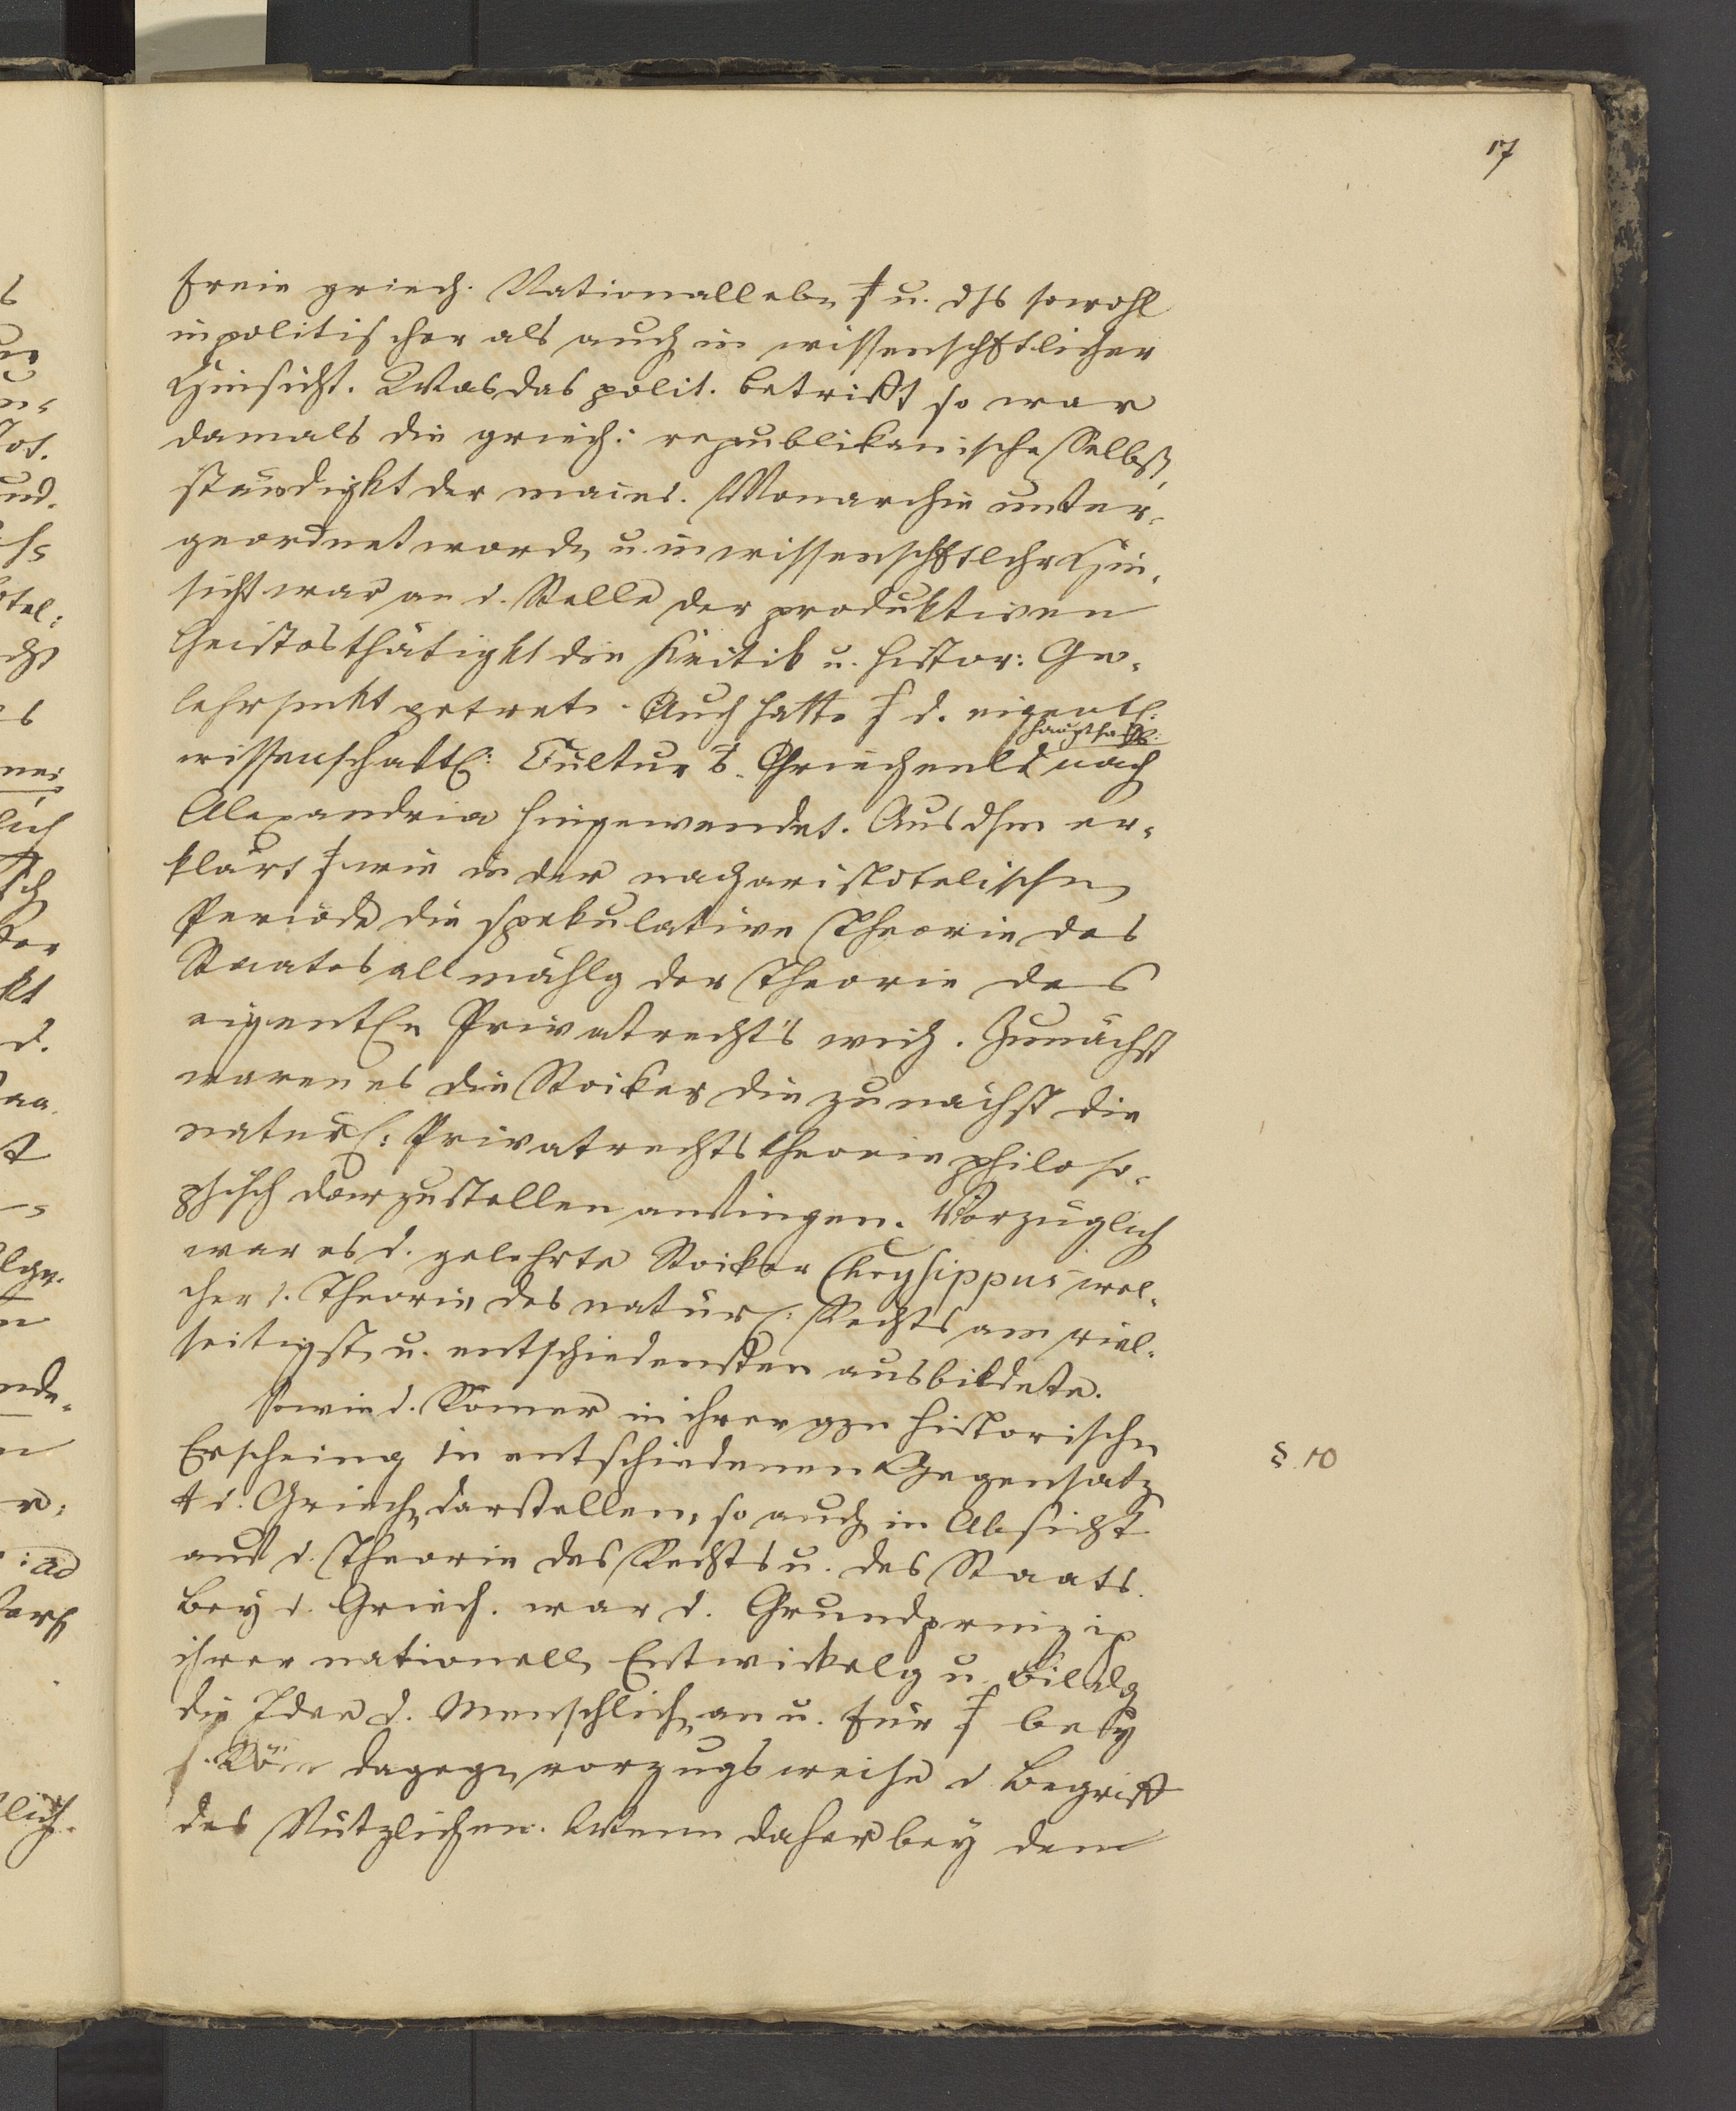 17
freie griech. Nationalleben u. dss sowohl
in politischer als auch in wissenschftlicher
Hinsicht. Was das polit. betrifft so war
damals die griech: republikanische Selbst
ständigkt der maced. Monarchie unter-
geordnet word, u. in wissenschftlchr Hin-
sicht war an d. Stelle der produktiven
Geistesthätigkt die Kritik u. histor: Ge-
lehrsmkt getret. Auch hatte d. eigentl:
hauptsächl:
wissenschaftl: Cultur d. Griechenld nach
Alexandria hingewendet. Aus dsm er-
klärt wie in der nacharistotelischn
Periode die spekulative Theorie des
Staates allmählg der Theorie des
eigentln Privatrechts wich. Zunächst
waren es die Stoiker die zunächst die
natürl: Privatrechtstheorie philoso-
phisch darzustellen anfingen. Vorzüglich
war es d. gelehrte Stoiker Chrysippus wel-
cher d. Theorie des natürl: Rechts am viel-
seitigst, u. entschiedensten ausbildete.
Sowie d. Römer in ihrer gzn historischn
Erscheing in entschiedenen Gegensatz
§. 10
d. Griech, darstellen, so auch in Absicht
auf d. Theorie des Rechts u. des Staats.
Bey d. Griech. war d. Grundprinzip
ihrer nationell, Entwickelg u. Bildg
die Idee d. Menschlich, an u. für bey
d. Röm dagegn vorzugsweise d. Begriff
des Nützlichen. Wenn daher bey dem